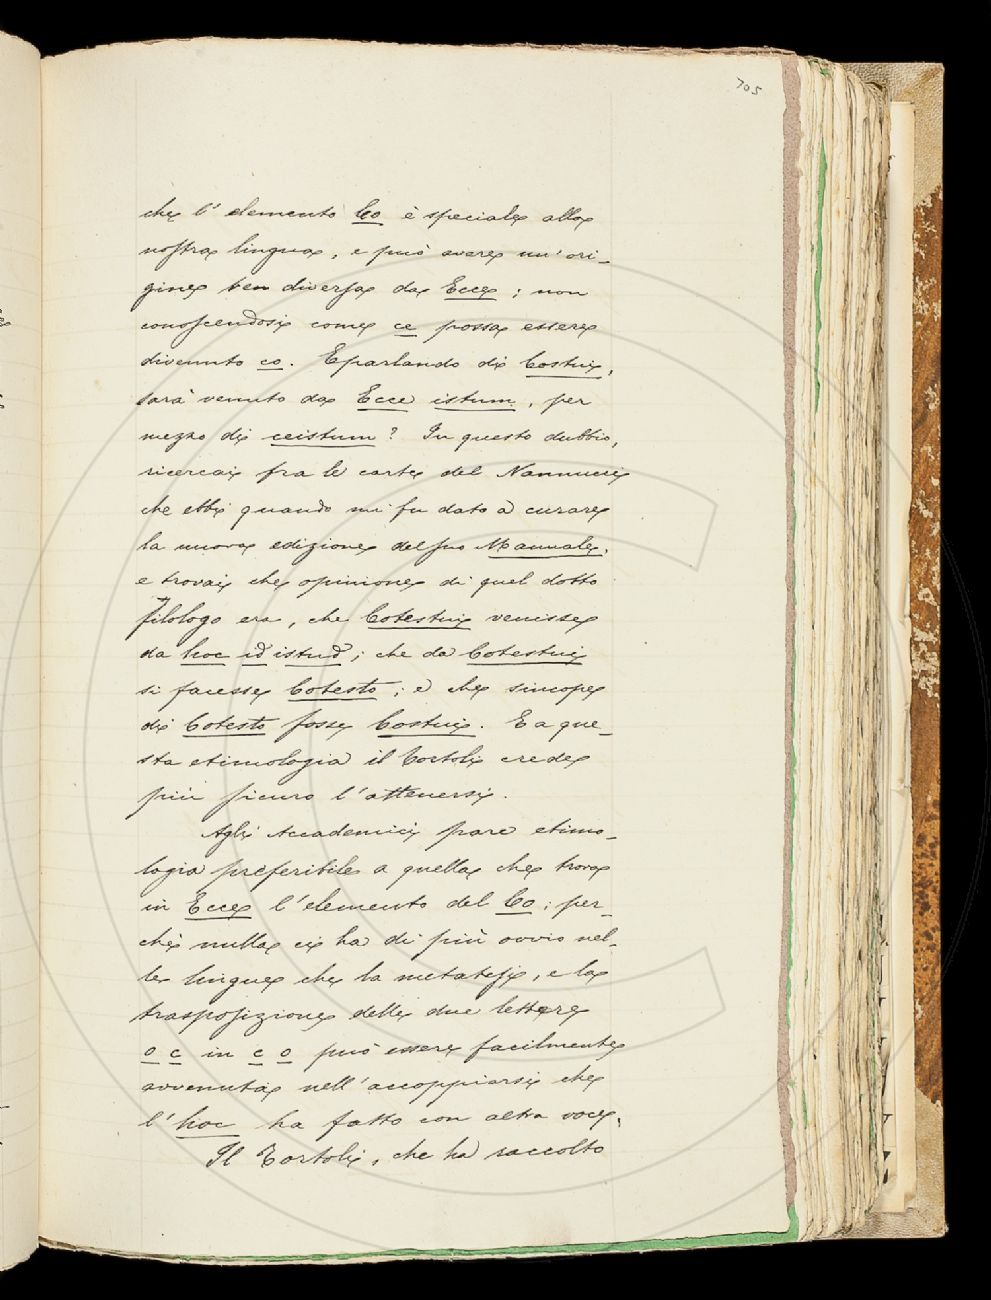 705
che l'elemento Co è speciale alla
nostra lingua, e può avere un'ori-
gine ben diversa da Ecce; non
conoscendosi come ce possa essere
divenuto co. E parlando di Costui,
sarà venuto da Ecce istum, per
mezzo di ceistum? In questo dubbio,
ricercai fra le carte del Nannucci
che ebbi quando mi fu dato a curare
la nuova edizione del suo Manuale,
e trovai che opinione di quel dotto
filologo era, che Cotestui venisse
da hoc id istud; che da Cotestui
si facesse Cotesto; e che sincope
di Cotesto fosse Costui. E a que-
sta etimologia il Tortoli crede
più sicuro l'attenersi.
Agli Accademici pare etimo-
logia preferibile a quella che trova
in Ecce l'elemento del Co; per-
chè nulla ci ha di più ovvio nel-
le lingue che la metatesi, e la
trasposizione delle due lettere
o c in c o può essere facilmente
avvenuta nell'accoppiarsi che
l'hoc ha fatto con altra voce.
Il Tortoli, che ha raccolto